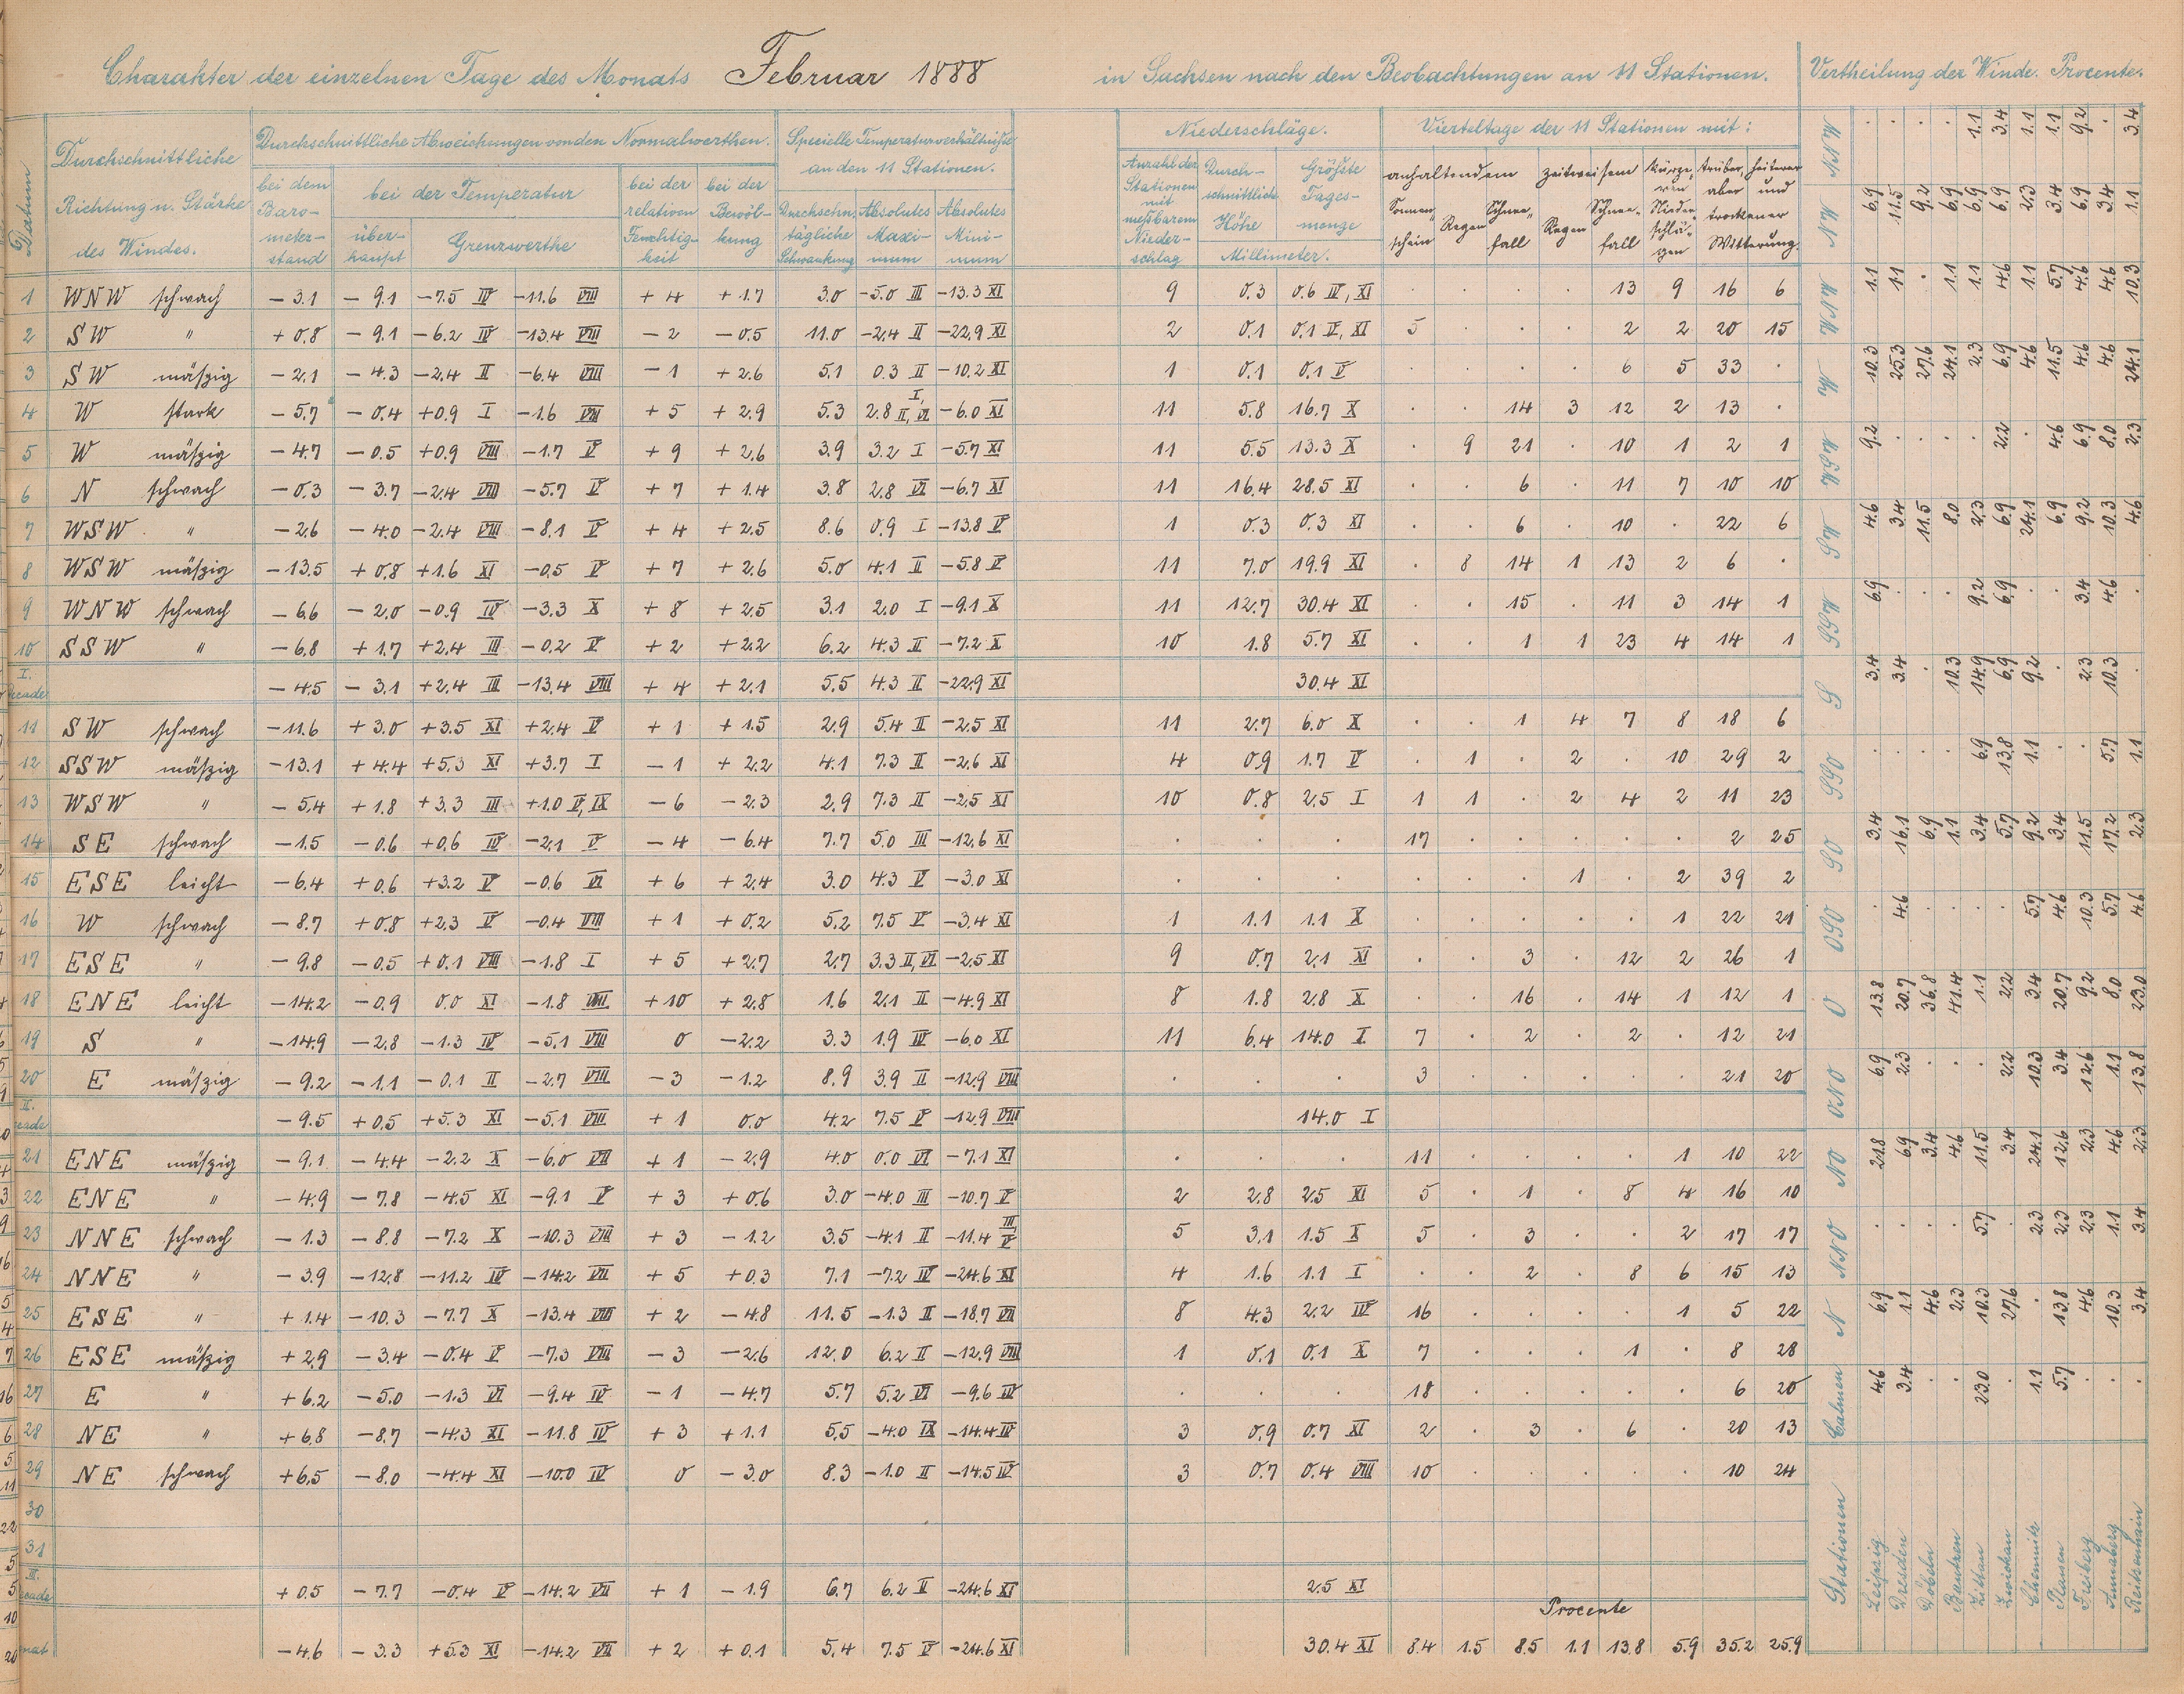 Charakter der einzelnen Tage des Monats Februar 1888 in Sachsen nach den Beobachtungen an 11 Stationen. Vertheilung der Winde. Procente.
Datum
Durchschnittliche Richtung u. Stärke des Windes.
Durchschnittliche Abweichungen von den Normalwerthen.
bei dem Barometerstand
bei der Temperatur
überhaupt Grenzwerthe
bei der relativen Feuchtigkeit
bei der Bewölkung
Specielle Temperaturverhältniße an den 11 Stationen.
Durchschn. tägliche Schwankung
Absolutes Maximum
Absolutes Minimum
Niederschläge.
Anzahl der Stationen mit meßbarem Niederschlag
Durchschnittliche Höhe
Größte Tagesmenge
Millimeter.
Vierteltage der 11 Stationen mit:
anhaltendem Sonnenschein Regen Schneefall
zeitweisem Regen Schneefall
kürzeren Niederschlägen
trüber aber trockener
heiterer und
Witterung.
1 WNW schwach −3.1 −9.1 −7.5 IV −11.6 VIII +4 +1.7 3.0 −5.0 III −13.3 XI 9 0.3 0.6 IV, XI . . . . 13 9 16 6
2 SW " +0.8 −9.1 −6.2 IV −13.4 VIII −2 −0.5 11.0 −2.4 II −22.9 XI 2 0.1 0.1 V, XI 5 . . . 2 2 20 15
3 SW mäßig −2.1 −4.3 −2.4 II −6.4 VIII −1 +2.6 5.1 0.3 II −10.2 XI 1 0.1 0.1 V . . . . 6 5 33 .
4 W stark −5.7 −0.4 +0.9 I −1.6 VII +5 +2.9 5.3 2.8 I, II, VI −6.0 XI 11 5.8 16.7 X . . 14 3 12 2 13 .
5 W mäßig −4.7 −0.5 +0.9 VIII −1.7 V +9 +2.6 3.9 3.2 I −5.7 XI 11 5.5 13.3 X . 9 21 . 10 1 2 1
6 N schwach −0.3 −3.7 −2.4 VIII −5.7 V +7 +1.4 3.8 2.8 VI −6.7 XI 11 16.4 28.5 XI . . 6 . 11 7 10 10
7 WSW " −2.6 −4.0 −2.4 VIII −8.1 V +4 +2.5 8.6 0.9 I −13.8 V 1 0.3 0.3 XI . . 6 . 10 . 22 6
8 WSW mäßig −13.5 +0.8 +1.6 XI −0.5 V +7 +2.6 5.0 4.1 II −5.8 V 11 7.0 19.9 XI . 8 14 1 13 2 6 .
9 WNW schwach −6.6 −2.0 −0.9 IV −3.3 X +8 +2.5 3.1 2.0 I −9.1 X 11 12.7 30.4 XI . . 15 . 11 3 14 1
10 SSW " −6.8 +1.7 +2.4 III −0.2 V +2 +2.2 6.2 4.3 II −7.2 X 10 1.8 5.7 XI . . 1 1 23 4 14 1
I. Decade −4.5 −3.1 +2.4 III −13.4 VIII +4 +2.1 5.5 4.3 II −22.9 XI 30.4 XI
11 SW schwach −11.6 +3.0 +3.5 XI +2.4 V +1 +1.5 2.9 5.4 II −2.5 XI 11 2.7 6.0 X . . 1 4 7 8 18 6
12 SSW mäßig −13.1 +4.4 +5.3 XI +3.7 I −1 +2.2 4.1 7.3 II −2.6 XI 4 0.9 1.7 V . 1 . 2 . 10 29 2
13 WSW " −5.4 +1.8 +3.3 III +1.0 V, IX −6 −2.3 2.9 7.3 II −2.5 XI 10 0.8 2.5 I 1 1 . 2 4 2 11 23
14 SE schwach −1.5 −0.6 +0.6 IV −2.1 V −4 −6.4 7.7 5.0 III −12.6 XI . . . 17 . . . . . 2 25
15 ESE leicht −6.4 +0.6 +3.2 V −0.6 VI +6 +2.4 3.0 4.3 V −3.0 XI . . . . . . 1 . 2 39 2
16 W schwach −8.7 +0.8 +2.3 V −0.4 VIII +1 +0.2 5.2 7.5 V −3.4 XI 1 1.1 1.1 X . . . . . 1 22 21
17 ESE " −9.8 −0.5 +0.1 VIII −1.8 I +5 +2.7 2.7 3.3 II, VI −2.5 XI 9 0.7 2.1 XI . . 3 . 12 2 26 1
18 ENE leicht −14.2 −0.9 0.0 XI −1.8 VIII +10 +2.8 1.6 2.1 II −4.9 XI 8 1.8 2.8 X . . 16 . 14 1 12 1
19 S " −14.9 −2.8 −1.3 IV −5.1 VIII 0 −2.2 3.3 1.9 IV −6.0 XI 11 6.4 14.0 I 7 . 2 . 2 . 12 21
20 E mäßig −9.2 −1.1 −0.1 II −2.7 VIII −3 −1.2 8.9 3.9 II −12.9 VIII . . . 3 . . . . . 21 20
II. Decade −9.5 +0.5 +5.3 XI −5.1 VIII +1 0.0 4.2 7.5 V −12.9 VIII 14.0 I
21 ENE mäßig −9.1 −4.4 −2.2 X −6.0 VII +1 −2.9 4.0 0.0 VI −7.1 XI . . . 11 . . . . 1 10 22
22 ENE " −4.9 −7.8 −4.5 XI −9.1 V +3 +0.6 3.0 −4.0 III −10.7 V 2 2.8 2.5 XI 5 . 1 . 8 4 16 10
23 NNE schwach −1.3 −8.8 −7.2 X −10.3 VIII +3 −1.2 3.5 −4.1 II −11.4 III, V 5 3.1 1.5 X 5 . 3 . . 2 17 17
24 NNE " −3.9 −12.8 −11.2 IV −14.2 VII +5 +0.3 7.1 −7.2 IV −24.6 XI 4 1.6 1.1 I . . 2 . 8 6 15 13
25 ESE " +1.4 −10.3 −7.7 X −13.4 VIII +2 −4.8 11.5 −1.3 II −18.7 VII 8 4.3 2.2 IV 16 . . . . 1 5 22
26 ESE mäßig +2.9 −3.4 −0.4 V −7.3 VIII −3 −2.6 12.0 6.2 II −12.9 VIII 1 0.1 0.1 X 7 . . . 1 . 8 28
27 E " +6.2 −5.0 −1.3 VI −9.4 IV −1 −4.7 5.7 5.2 VI −9.6 IV . . . 18 . . . . . 6 20
28 NE " +6.8 −8.7 −4.3 XI −11.8 IV +3 +1.1 5.5 −4.0 IX −14.4 IV 3 0.9 0.7 XI 2 . 3 . 6 . 20 13
29 NE schwach +6.5 −8.0 −4.4 XI −10.0 IV 0 −3.0 8.3 −1.0 II −14.5 IV 3 0.7 0.4 VIII 10 . . . . . 10 24
30
31
III. Decade +0.5 −7.7 −0.4 V −14.2 VII +1 −1.9 6.7 6.2 II −24.6 XI 2.5 XI
Procente
Monat −4.6 −3.3 +5.3 XI −14.2 VII +2 +0.1 5.4 7.5 V −24.6 XI 30.4 XI 8.4 1.5 8.5 1.1 13.8 5.9 35.2 25.9
Stationen Leipzig Dresden Döbeln Bautzen Zittau Zwickau Chemnitz Plauen Freiberg Annaberg Reitzenhain
Calmen 4.6 3.4 . . 23.0 . 1.1 5.7 . . .
N 6.9 1.1 4.6 2.3 10.3 27.6 . 13.8 4.6 10.3 3.4
NNO . . . . 5.7 . 2.3 2.3 2.3 1.1 3.4
NO 21.8 6.9 3.4 4.6 11.5 3.4 24.1 12.6 2.3 4.6 2.3
ONO 6.9 2.3 . . . 2.2 10.3 3.4 12.6 1.1 13.8
O 13.8 20.7 36.8 41.4 1.1 2.2 3.4 20.7 9.2 8.0 23.0
OSO . 4.6 . . . . 5.7 4.6 10.3 5.7 4.6
SO 3.4 16.1 6.9 1.1 3.4 5.7 9.2 3.4 11.5 17.2 2.3
SSO . . . . 6.9 13.8 1.1 . . 5.7 1.1
S 3.4 3.4 . 10.3 14.9 6.9 9.2 . 2.3 10.3 .
SSW 6.9 . . . 9.2 6.9 . . 3.4 4.6 .
SW 4.6 3.4 11.5 8.0 2.3 6.9 24.1 6.9 9.2 10.3 4.6
WSW 9.2 . . . . 2.2 . 4.6 6.9 8.0 2.3
W 10.3 25.3 27.6 24.1 2.3 6.9 4.6 11.5 4.6 4.6 24.1
WNW 1.1 1.1 . 1.1 1.1 4.6 1.1 5.7 4.6 4.6 10.3
NW 6.9 11.5 9.2 6.9 6.9 6.9 2.3 3.4 6.9 3.4 1.1
NNW . . . . 1.1 3.4 1.1 1.1 9.2 . 3.4